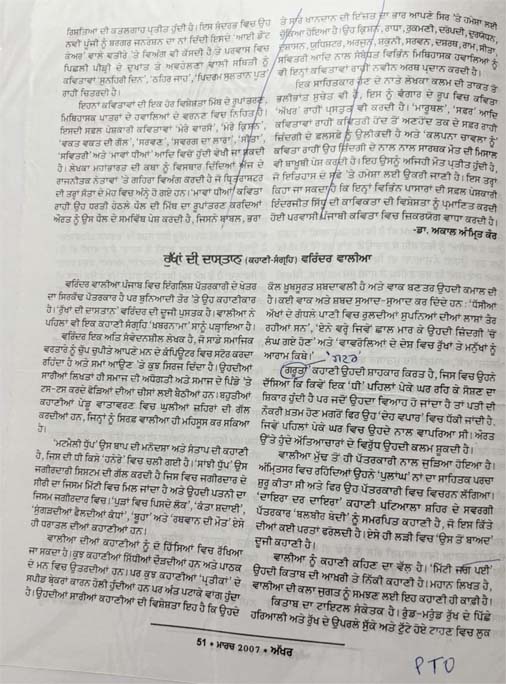 ਰਿਸ਼ਤਿਆਂ ਦੀ ਕਤਲਗਾਹ ਪ੍ਰਤੀਤ ਹੁੰਦੀ ਹੈ। ਇਸ ਸੰਦਰਭ ਵਿਚ ਉਹ
ਨਵੀਂ ਪੂੰਜੀ ਨੂੰ ਬਰਗਰ ਜਨਰੇਸ਼ਨ ਦਾ ਨਾਂ ਦਿੰਦੀ ਇਸਦੇ 'ਆਈ ਡੋਂਟ
ਕੇਅਰ' ਵਾਲੇ ਵਤੀਰੇ 'ਤੇ ਵਿਅੰਗ ਵੀ ਕੱਸਦੀ ਹੈ ਤੇ ਪਰਵਾਸ ਵਿਚ
ਪਿਛਲੀ ਪੀੜ੍ਹੀ ਦੇ ਦੁਖਾਂਤ ਤੇ ਅਵਹੇਲਣਾ ਵਾਲੀ ਸਥਿਤੀ ਨੂੰ
ਕਵਿਤਾਵਾਂ 'ਸੁਨਹਿਰੀ ਦਿਨ' 'ਠਹਿਰ ਜਾਹ', 'ਪਿਦਰਮ ਸੁਲਤਾਨ ਬੂਤ'
ਰਾਹੀਂ ਚਿਤਰਦੀ ਹੈ।
ਇਹਨਾਂ ਕਵਿਤਾਵਾਂ ਦੀ ਇਕ ਹੋਰ ਵਿਸ਼ੇਸ਼ਤਾ ਮਿੱਥ ਦੇ ਰੂਪਾਂਤਰਣ,
ਮਿਥਿਹਾਸਕ ਪਾਤਰਾਂ ਦੇ ਹਵਾਲਿਆਂ ਦੇ ਵਰਨਣ ਵਿਚ ਨਿਹਿਤ ਹੈ।
ਇਸਦੀ ਸਫਲ ਪੇਸ਼ਕਾਰੀ ਕਵਿਤਾਵਾਂ 'ਮੇਰੇ ਵਾਰਸੋ', 'ਮੇਰੇ ਕ੍ਰਿਸ਼ਨ',
'ਵਕਤ ਵਕਤ ਦੀ ਗੱਲ', 'ਸਰਵਣ', 'ਸਵਰਗ ਦਾ ਲਾਰਾ', 'ਸੀਤਾ',
'ਸਵਿਤਰੀ' ਅਤੇ 'ਮਾਵਾਂ ਧੀਆਂ' ਆਦਿ ਵਿਚੋਂ ਹੁੰਦੀ ਵੇਖੀ ਜਾ ਸਕਦੀ
ਹੈ। ਲੇਖਕਾ ਮਹਾਂਭਾਰਤ ਦੀ ਕਥਾ ਨੂੰ ਵਿਸਥਾਰ ਦਿੰਦਿਆਂ ਅੱਜ ਦੇ
ਰਾਜਨੀਤਕ ਨੇਤਾਵਾਂ 'ਤੇ ਗਹਿਰਾ ਵਿਅੰਗ ਕਰਦੀ ਹੈ ਜੋ ਧ੍ਰਿਤਰਾਸ਼ਟਰ
ਦੀ ਤਰ੍ਹਾਂ ਸੱਤਾ ਦੇ ਮੋਹ ਵਿਚ ਅੰਨ੍ਹੇ ਹੋ ਗਏ ਹਨ। 'ਮਾਵਾਂ ਧੀਆਂ' ਕਵਿਤਾ
ਰਾਹੀਂ ਉਹ ਧਰਤੀ ਹੇਠਲੇ ਧੌਲ ਦੀ ਮਿੱਥ ਦਾ ਰੂਪਾਂਤਰਣ ਕਰਦਿਆਂ
ਔਰਤ ਨੂੰ ਉਸ ਧੌਲ ਦੇ ਸਮਵਿੱਥ ਪੇਸ਼ ਕਰਦੀ ਹੈ, ਜਿਸਨੇ ਬਾਬਲ, ਭਰਾ
ਤੇ ਸਾਰੇ ਖ਼ਾਨਦਾਨ ਦੀ ਇੱਜ਼ਤ ਦਾ ਭਾਰ ਆਪਣੇ ਸਿਰ 'ਤੇ ਹਮੇਸ਼ਾ ਲਈ
ਚੁੱਕਿਆ ਹੋਇਆ ਹੈ। ਉਹ ਕ੍ਰਿਸ਼ਨ, ਰਾਧਾ, ਰੁਕਮਣੀ, ਦਰੋਪਦੀ, ਦੁਰਯੋਧਨ,
ਦੁਸ਼ਾਸਨ, ਯੁਧਿਸ਼ਟਰ, ਅਰਜੁਨ, ਸ਼ਕੁਨੀ, ਸਰਵਨ, ਦਸ਼ਰਥ, ਰਾਮ, ਸੀਤਾ,
ਸਵਿਤਰੀ ਆਦਿ ਨਾਲ ਸੰਬੰਧਤ ਵਿਭਿੰਨ ਮਿਥਿਹਾਸਕ ਹਵਾਲਿਆਂ ਨੂੰ
ਵੀ ਇਨ੍ਹਾਂ ਕਵਿਤਾਵਾਂ ਰਾਹੀਂ ਨਵੀਨ ਅਰਥ ਪ੍ਰਦਾਨ ਕਰਦੀ ਹੈ।
ਇਕ ਸਾਹਿਤਕਾਰ ਹੋਣ ਦੇ ਨਾਤੇ ਲੇਖਕਾ ਕਲਮ ਦੀ ਤਾਕਤ ਤੋਂ
ਭਲੀਭਾਂਤ ਸੁਚੇਤ ਵੀ ਹੈ, ਇਸ ਨੂੰ ਵੰਗਾਰ ਦੇ ਰੂਪ ਵਿਚ ਕਵਿਤਾ
'ਅੱਖਰ' ਰਾਹੀਂ ਪਸਤੁਤ ਵੀ ਕਰਦੀ ਹੈ। 'ਮਾਰੂਥਲ', 'ਸਫਰ' ਆਦਿ
ਕਵਿਤਾਵਾਂ ਰਾਹੀਂ ਕਵਿਤਰੀ ਹੋਂਦ ਤੋਂ ਅਣਹੋਂਦ ਤਕ ਦੇ ਸਫ਼ਰ ਰਾਹੀਂ
ਜ਼ਿੰਦਗੀ ਦੇ ਫਲਸਫ਼ੇ ਨੂੰ ਉਲੀਕਦੀ ਹੈ ਅਤੇ 'ਕਲਪਨਾ ਚਾਵਲਾ ਨੂੰ'
ਕਵਿਤਾ ਰਾਹੀਂ ਉਹ ਜ਼ਿੰਦਗੀ ਦੇ ਨਾਲ ਨਾਲ ਸਾਰਥਕ ਮੌਤ ਦੀ ਮਿਸਾਲ
ਵੀ ਬਾਖੂਬੀ ਪੇਸ਼ ਕਰਦੀ ਹੈ। ਇਹ ਉਸਨੂੰ ਅਜਿਹੀ ਮੌਤ ਪ੍ਰਤੀਤ ਹੁੰਦੀ ਹੈ,
ਜੋ ਇਤਿਹਾਸ ਦੇ ਸਫ਼ੇ 'ਤੇ ਹਮੇਸ਼ਾ ਲਈ ਉਕਰੀ ਜਾਣੀ ਹੈ। ਇਸ ਤਰ੍ਹਾਂ
ਕਿਹਾ ਜਾ ਸਕਦਾ ਹੈ ਕਿ ਇਨ੍ਹਾਂ ਵਿਭਿੰਨ ਪਾਸਾਰਾਂ ਦੀ ਸਫਲ ਪੇਸ਼ਕਾਰੀ
ਇੰਦਰਜੀਤ ਸਿੱਧੂ ਦੀ ਕਾਵਿਕਤਾ ਦੀ ਵਿਸ਼ੇਸ਼ਤਾ ਨੂੰ ਪ੍ਰਮਾਣਿਤ ਕਰਦੀ
ਹੋਈ ਪਰਵਾਸੀ ਪੰਜਾਬੀ ਕਵਿਤਾ ਵਿਚ ਜ਼ਿਕਰਯੋਗ ਵਾਧਾ ਕਰਦੀ ਹੈ।
-ਡਾ. ਅਕਾਲ ਅੰਮ੍ਰਿਤ ਕੌਰ
ਰੁੱਖਾਂ ਦੀ ਦਾਸਤਾਨ (ਕਹਾਣੀ-ਸੰਗ੍ਰਹਿ) ਵਰਿੰਦਰ ਵਾਲੀਆ
ਵਰਿੰਦਰ ਵਾਲੀਆ ਪੰਜਾਬ ਵਿਚ ਇੰਗਲਿਸ਼ ਪੱਤਰਕਾਰੀ ਦੇ ਖੇਤਰ
ਦਾ ਸਿਰਕੱਢ ਪੱਤਰਕਾਰ ਹੈ ਪਰ ਬੁਨਿਆਦੀ ਤੌਰ 'ਤੇ ਉਹ ਕਹਾਣੀਕਾਰ
ਹੈ। 'ਰੁੱਖਾਂ ਦੀ ਦਾਸਤਾਨ' ਵਰਿੰਦਰ ਦੀ ਦੂਜੀ ਪੁਸਤਕ ਹੈ। ਵਾਲੀਆ ਨੇ
ਪਹਿਲਾਂ ਵੀ ਇਕ ਕਹਾਣੀ ਸੰਗ੍ਰਹਿ 'ਖ਼ਬਰਨਾਮਾ' ਸਾਨੂੰ ਪੜ੍ਹਾਇਆ ਹੈ।
ਵਰਿੰਦਰ ਇਕ ਅਤਿ ਸੰਵੇਦਨਸ਼ੀਲ ਲੇਖਕ ਹੈ, ਜੋ ਸਾਡੇ ਸਮਾਜਿਕ
ਵਰਤਾਰੇ ਨੂੰ ਚੁੱਪ ਚੁਪੀਤੇ ਆਪਣੇ ਮਨ ਦੇ ਕੰਪਿਊਟਰ ਵਿਚ ਸਟੋਰ ਕਰਦਾ
ਰਹਿੰਦਾ ਹੈ ਅਤੇ ਸਮਾਂ ਆਉਣ 'ਤੇ ਕੁਝ ਸਿਰਜ ਦਿੰਦਾ ਹੈ। ਉਹਦੀਆਂ
ਸਾਰੀਆਂ ਲਿਖਤਾਂ ਹੀ ਸਮਾਜ ਦੀ ਅਧੋਗਤੀ ਅਤੇ ਸਮਾਜ ਦੇ ਪਿੰਡੇ 'ਤੇ
ਟਸ-ਟਸ ਕਰਦੇ ਫੋੜਿਆਂ ਦੀਆਂ ਚੀਸਾਂ ਲਈ ਬੈਠੀਆਂ ਹਨ। ਬਹੁਤੀਆਂ
ਕਹਾਣੀਆਂ ਪੇਂਡੂ ਵਾਤਾਵਰਣ ਵਿਚ ਘੁਲੀਆਂ ਜ਼ਹਿਰਾਂ ਦੀ ਗੱਲ
ਕਰਦੀਆਂ ਹਨ, ਜਿਨ੍ਹਾਂ ਨੂੰ ਸਿਰਫ਼ ਵਾਲੀਆ ਹੀ ਮਹਿਸੂਸ ਕਰ ਸਕਿਆ
ਹੈ।
'ਮਟਮੈਲੀ ਧੁੱਪ' ਉਸ ਬਾਪ ਦੀ ਮਨੋਦਸ਼ਾ ਅਤੇ ਸੰਤਾਪ ਦੀ ਕਹਾਣੀ
ਹੈ, ਜਿਸ ਦੀ ਧੀ ਕਿਸੇ 'ਹਨੇਰੇ' ਵਿਚ ਚਲੀ ਗਈ ਹੈ। 'ਸਾਂਝੀ ਧੁੱਪ' ਉਸ
ਜਗੀਰਦਾਰੀ ਸਿਸ਼ਟਮ ਦੀ ਗੱਲ ਕਰਦੀ ਹੈ ਜਿਸ ਵਿਚ ਜਗੀਰਦਾਰ ਦੇ
ਸੀਰੀ ਦਾ ਜਿਸਮ ਮਿੱਟੀ ਵਿਚ ਮਿਲ ਜਾਂਦਾ ਹੈ ਅਤੇ ਉਹਦੀ ਪਤਨੀ ਦਾ
ਜਿਸਮ ਜਗੀਰਦਾਰ ਵਿਚ। 'ਪੁੜਾਂ ਵਿਚ ਪਿਸਦੇ ਲੋਕ', 'ਕੇਤਾ ਸ਼ਦਾਈ',
'ਸੁੰਗੜਦੀਆਂ ਫੈਲਦੀਆਂ ਕੰਧਾਂ', 'ਬੂਹਾ' ਅਤੇ 'ਰਥਵਾਨ ਦੀ ਮੌਤ' ਏਸੇ
ਹੀ ਧਰਾਤਲ ਦੀਆਂ ਕਹਾਣੀਆਂ ਹਨ।
ਵਾਲੀਆ ਦੀਆਂ ਕਹਾਣੀਆਂ ਨੂੰ ਦੋ ਹਿੱਸਿਆਂ ਵਿਚ ਰੱਖਿਆ
ਜਾ ਸਕਦਾ ਹੈ। ਕੁਝ ਕਹਾਣੀਆਂ ਸਿੱਧੀਆਂ ਦੌੜਦੀਆਂ ਹਨ ਅਤੇ ਪਾਠਕ
ਦੇ ਮਨ ਵਿਚ ਉਤਰਦੀਆਂ ਹਨ। ਪਰ ਕੁਝ ਕਹਾਣੀਆਂ 'ਪ੍ਰਤੀਕਾਂ' ਦੇ
ਸਪੀਡ ਬ੍ਰੇਕਰਾਂ ਕਾਰਨ ਹੌਲੀ ਹੁੰਦੀਆਂ ਹਨ ਪਰ ਅੰਤ ਪਟਾਕੇ ਵਾਂਗ ਹੁੰਦਾ
ਹੈ। ਉਹਦੀਆਂ ਸਾਰੀਆਂ ਕਹਾਣੀਆਂ ਦੀ ਵਿਸ਼ੇਸ਼ਤਾ ਇਹ ਹੈ ਕਿ ਉਹਦੇ
ਕੋਲ ਖ਼ੂਬਸੂਰਤ ਸ਼ਬਦਾਵਲੀ ਹੈ ਅਤੇ ਵਾਕ ਬਣਤਰ ਉਹਦੀ ਕਮਾਲ ਦੀ
ਹੈ। ਕਈ ਵਾਕ ਅਤੇ ਸ਼ਬਦ ਸੁਆਦ-ਸੁਆਦ ਕਰ ਦਿੰਦੇ ਹਨ : 'ਧੌਸੀਆਂ
ਅੱਖਾਂ ਦੇ ਗੰਧਲੇ ਪਾਣੀ ਵਿਚ ਰੁਲਦੀਆਂ ਸੁਪਨਿਆਂ ਦੀਆਂ ਲਾਸ਼ਾਂ ਤੈਰ
ਰਹੀਆਂ ਸਨ', 'ਏਨੇ ਵਰ੍ਹੇ ਜਿਵੇਂ ਛਾਲ ਮਾਰ ਕੇ ਉਹਦੀ ਜ਼ਿੰਦਗੀ 'ਚੋਂ
ਲੰਘ ਗਏ ਹੋਣ' ਅਤੇ 'ਵਾਵਰੋਲਿਆਂ ਦੇ ਦੇਸ਼ ਵਿਚ ਰੁੱਖਾਂ ਤੇ ਮਨੁੱਖਾਂ ਨੂੰ
ਆਰਾਮ ਕਿਥੇ।'
'ਗਰੁਤਾ' ਕਹਾਣੀ ਉਹਦੀ ਸ਼ਾਹਕਾਰ ਕਿਰਤ ਹੈ, ਜਿਸ ਵਿਚ ਉਹਨੇ
ਦੱਸਿਆ ਕਿ ਕਿਵੇਂ ਇਕ 'ਧੀ' ਪਹਿਲਾਂ ਪੇਕੇ ਘਰ ਰਹਿ ਕੇ ਸੋਸ਼ਣ ਦਾ
ਸ਼ਿਕਾਰ ਹੁੰਦੀ ਹੈ ਪਰ ਜਦੋਂ ਉਹਦਾ ਵਿਆਹ ਹੋ ਜਾਂਦਾ ਹੈ ਤਾਂ ਪਤੀ ਦੀ
ਨੌਕਰੀ ਖ਼ਤਮ ਹੋਣ ਮਗਰੋਂ ਫਿਰ ਉਹ 'ਦੇਹ ਵਪਾਰ' ਵਿਚ ਧੱਕੀ ਜਾਂਦੀ ਹੈ,
ਜਿਵੇਂ ਪਹਿਲਾਂ ਪੇਕੇ ਘਰ ਵਿਚ ਉਹਦੇ ਨਾਲ ਵਾਪਰਿਆ ਸੀ। ਔਰਤ
ਉੱਤੇ ਹੁੰਦੇ ਅੱਤਿਆਚਾਰਾਂ ਦੇ ਵਿਰੁੱਧ ਉਹਦੀ ਕਲਮ ਸ਼ੂਕਦੀ ਹੈ।
ਵਾਲੀਆ ਮੁੱਢ ਤੋਂ ਹੀ ਪੱਤਰਕਾਰੀ ਨਾਲ ਜੁੜਿਆ ਹੋਇਆ ਹੈ।
ਅੰਮ੍ਰਿਤਸਰ ਵਿਚ ਰਹਿੰਦਿਆਂ ਉਹਨੇ 'ਪੁਲਾਂਘ' ਨਾਂ ਦਾ ਸਾਹਿਤਕ ਪਰਚਾ
ਸ਼ੁਰੂ ਕੀਤਾ ਸੀ ਅਤੇ ਫਿਰ ਉਹ ਪੱਤਰਕਾਰੀ ਵਿਚ ਵਿਚਰਨ ਲੱਗਿਆ।
'ਦਾਇਰਾ ਦਰ ਦਾਇਰਾ' ਕਹਾਣੀ ਪਟਿਆਲਾ ਸ਼ਹਿਰ ਦੇ ਸਵਰਗੀ
ਪੱਤਰਕਾਰ 'ਬਲਬੀਰ ਬੇਦੀ' ਨੂੰ ਸਮਰਪਿਤ ਕਹਾਣੀ ਹੈ, ਜੋ ਇਸ ਕਿੱਤੇ
ਦੀਆਂ ਕਈ ਪਰਤਾਂ ਫਰੋਲਦੀ ਹੈ। ਏਸੇ ਹੀ ਲੜੀ ਵਿਚ 'ਉਸ ਤੋਂ ਬਾਅਦ'
ਦੂਜੀ ਕਹਾਣੀ ਹੈ।
ਵਾਲੀਆ ਨੂੰ ਕਹਾਣੀ ਕਹਿਣ ਦਾ ਵੱਲ ਹੈ। 'ਮਿੱਟੀ ਜਾਗ ਪਈ'
ਉਹਦੀ ਕਿਤਾਬ ਦੀ ਆਖ਼ਰੀ ਤੇ ਨਿੱਕੀ ਕਹਾਣੀ ਹੈ। ਮਹਾਨ ਲਿਖਤ ਹੈ,
ਵਾਲੀਆ ਦੀ ਕਲਾ ਜੁਗਤ ਨੂੰ ਸਮਝਣ ਲਈ ਇਹ ਕਹਾਣੀ ਹੀ ਕਾਫ਼ੀ ਹੈ।
ਕਿਤਾਬ ਦਾ ਟਾਈਟਲ ਸੰਕੇਤਕ ਹੈ। ਰੁੰਡ-ਮਰੁੰਡ ਰੁੱਖ ਦੇ ਪਿੱਛੇ
ਹਰਿਆਲੀ ਅਤੇ ਰੁੱਖ ਦੇ ਉਪਰਲੇ ਸੁੱਕੇ ਅਤੇ ਟੁੱਟੇ ਹੋਏ ਟਾਹਣ ਵਿਚ ਲੁਕ
51 • ਮਾਰਚ 2007 • ਅੱਖਰ
PTO